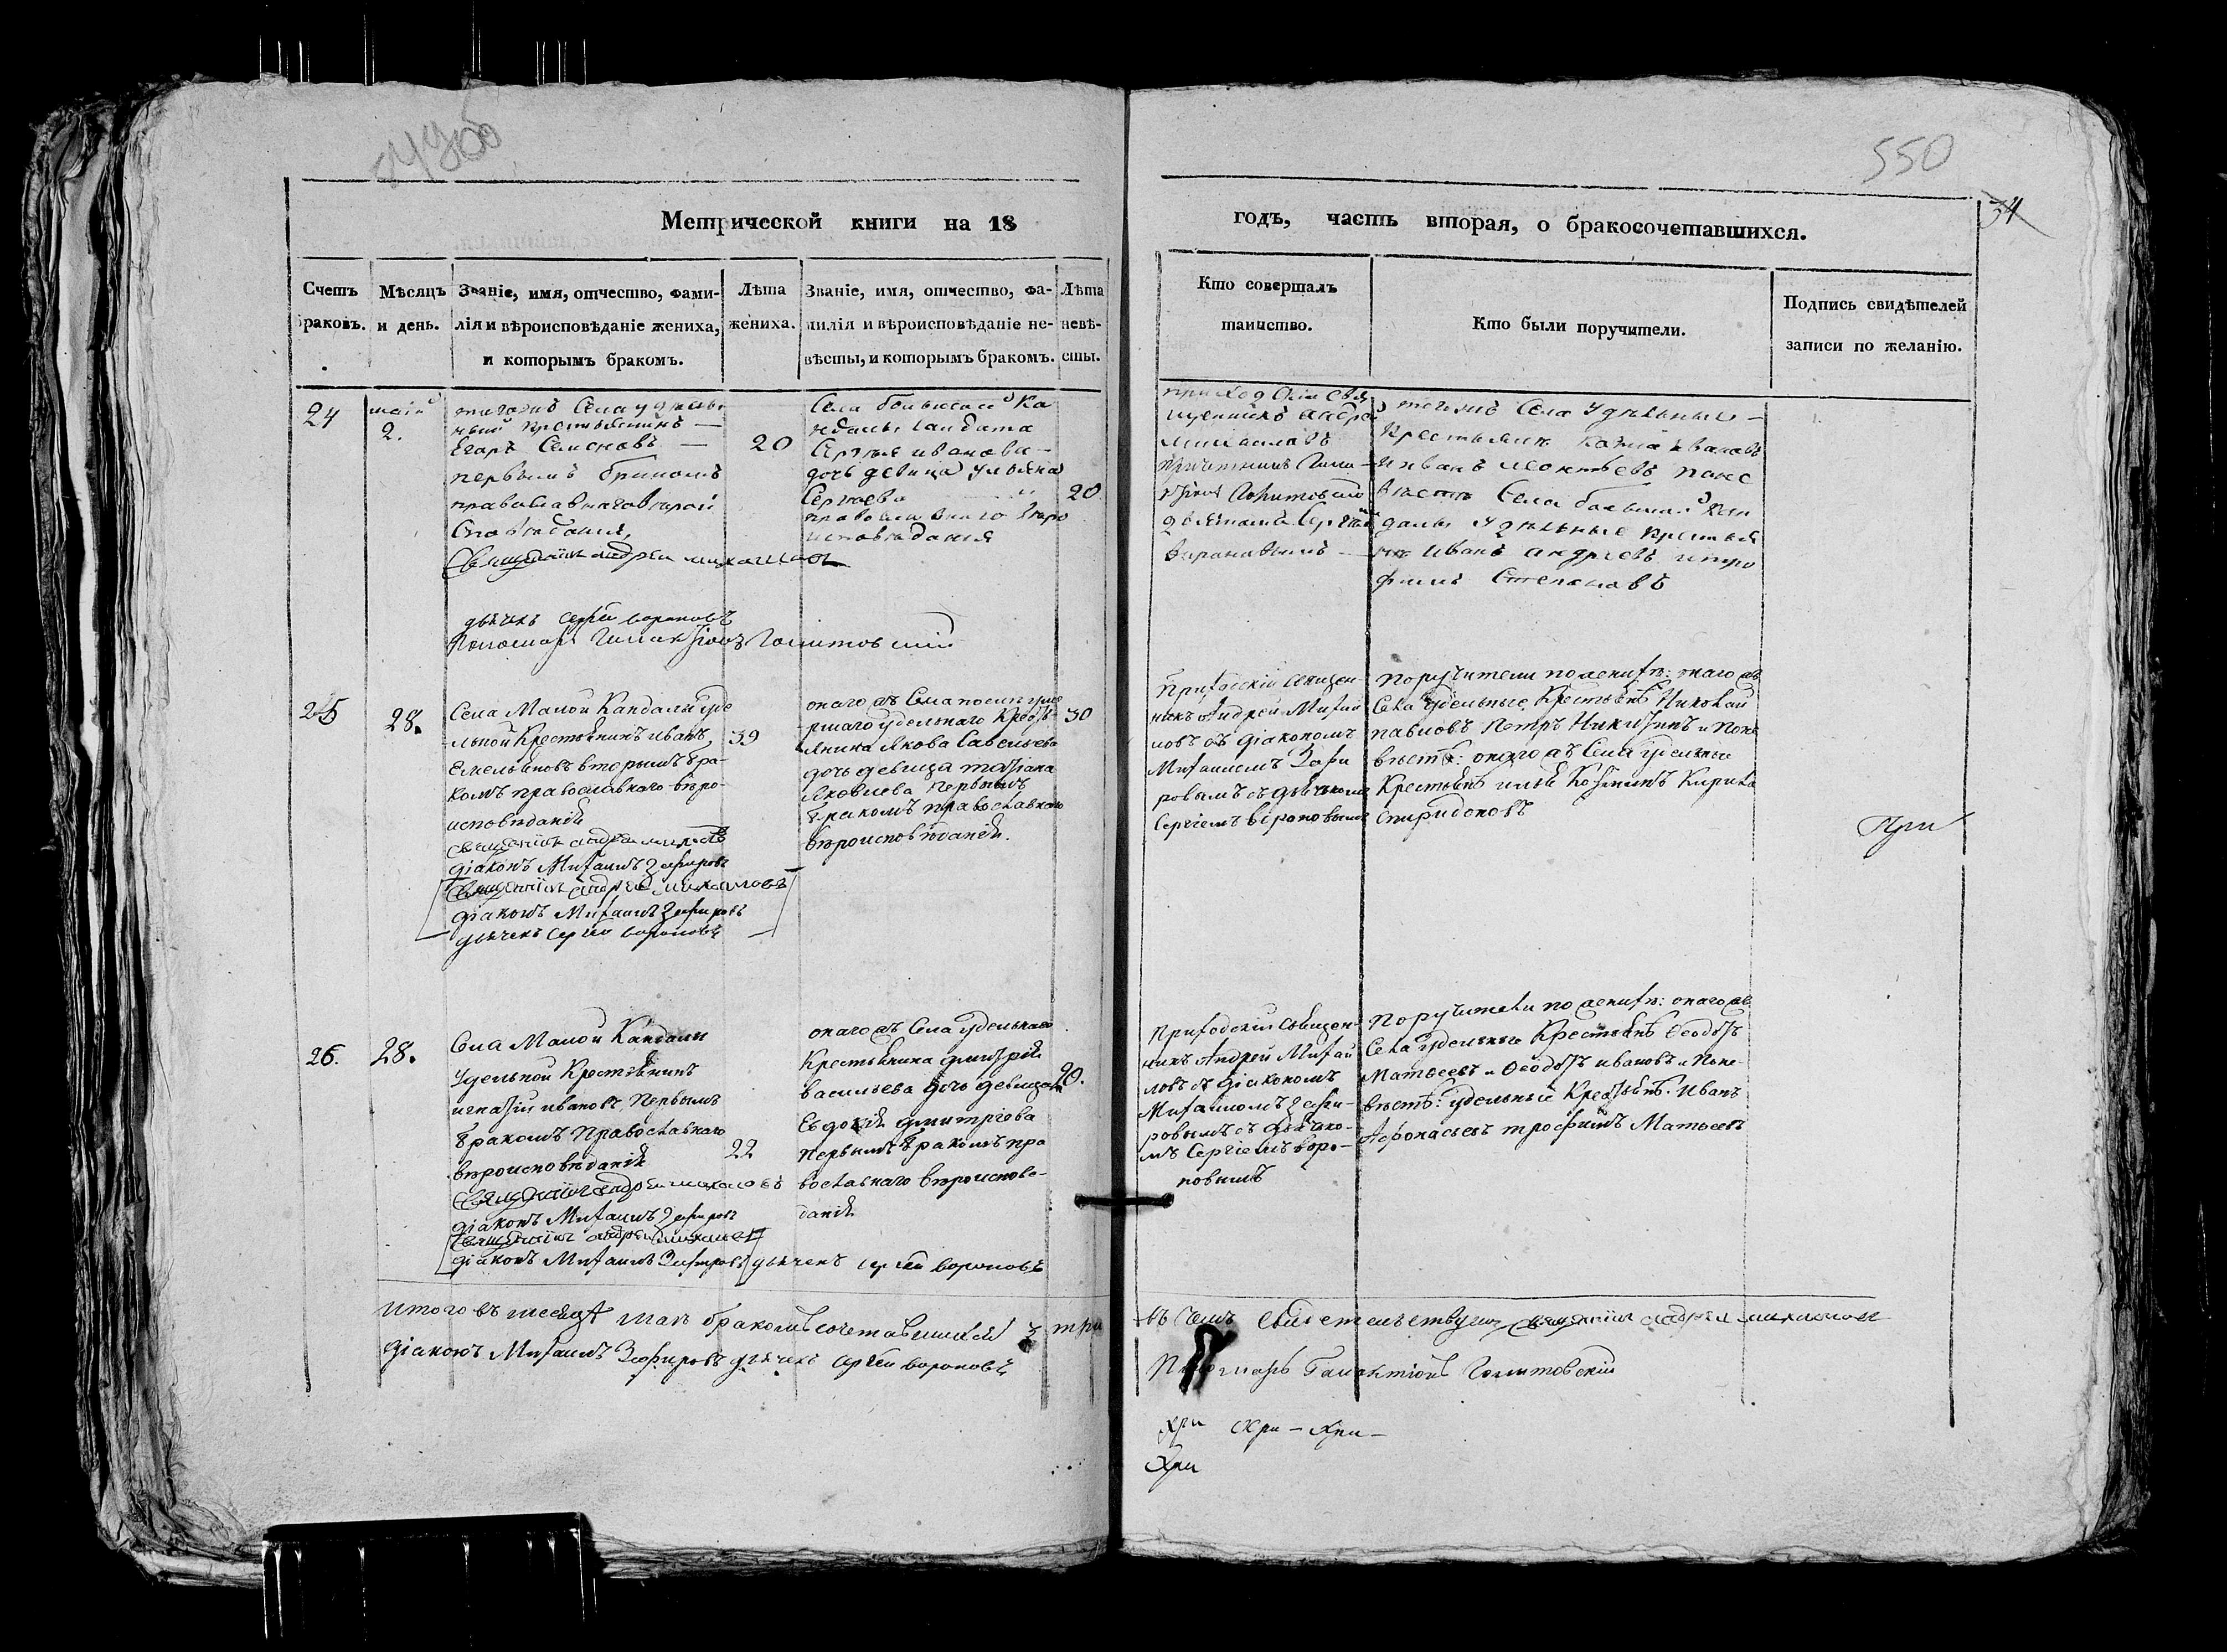 550
34
Метрической книги на 18
годъ, часть вторая, о бракосочетавшихся.
Счетъ браковъ.
Мѣсяцъ и день.
Званіе, имя, отчество, фами-
лія и вѣроисповѣданіе жениха,
и которымъ бракомъ.
Лѣта
жениха.
Званіе, имя, отчество, фа-
милія и вѣроисповѣданіе не-
вѣсты, и которымъ бракомъ.
Лѣта
невѣ-
сты.
Кто совершалъ
таинство.
Кто были поручители.
Подпись свидѣтелей
записи по желанію.
24
маія
2.
тогожъ Села удѣль
ный крестьянинъ —
Егоръ Семеновъ —
первымъ бракомъ
православнаго вѣрои
споведания
Священникъ андреи михаиловъ
дьячекъ сергѣи вороновъ
Пономарь Галактіонъ Голитовскіи
20
Села большой Ка
ндалы
Сергѣя иванова
дочь девица ульяна
Сергѣева
православнаго вѣро
исповѣдания
20
приходскій Свя
щенникъ андрей
михаиловъ
дьячкомъ Сергѣем
Вороновымъ
тогожъ Села Удѣльные —
Крестьяне Козма ивановъ
Иванъ леонтьевъ поне
вѣсте Села большой Кан
далы Удѣльные крестья
не Иванъ андреевъ итро
фимъ Степановъ
25
28.
Села Малой Кандалы уде
льной Крестьянинъ иванъ
Емельяновъ вторымъ бра-
комъ православнаго вѣро-
исповѣданія
священникъ андреи михаиловъ
діаконъ Михаилъ Зефировъ
Священникъ андрей михаиловъ
діаконъ Михаилъ Зефировъ
дьячекъ сергѣи вороновъ
39
онаго жъ Села после уме
ршаго удельнаго Кресть-
янина Якова Савельева
дочь девица татіана
Яковлева Первымъ
бракомъ православнаго
вѣроисповѣданія.
30
Приходскій священ-
никъ Андрей Михаи
ловъ съ діакономъ
Михаиломъ Зефи
ровымъ съ дьячкомъ
Сергіемъ вороновымъ
Поручители по женихѣ: онаго жъ
Села удельные Крестьяне Николай
павловъ Петръ Никитинъ и Поне
вѣстѣ: онаго жъ Села удельные
Крестьяне илья Козминъ Кирила
Спиридоновъ
При
26.
28.
Села Малой Кандалы
Удельной Крестьянинъ
игнатіи ивановъ Первымъ
бракомъ Православнаго
вѣроисповѣданія
Священникъ андреи михаиловъ
діаконъ Михаилъ Зефировъ
Священникъ андрей михаиловъ
діаконъ Михаилъ Зефировъ дьячекъ сергѣй вороновъ
22
онаго жъ Села удельнаго
Крестьянина дмитрія
васильева дочь девица
Евдокія дмитріева
первымъ бракомъ пра
вославнаго вѣроиспове-
данія
20.
Приходскій Священ-
никъ Андрей Михаи
ловъ съ діакономъ
Михаиломъ Зефи-
ровымъ съ дьячко-
мъ Сергіемъ воро-
новымъ
Поручители по женихѣ: онаго жъ
Села удельные Крестьяне Ѳеодоръ
Матвеевъ и Ѳеодоръ ивановъ и Поне-
вѣстѣ: удельные Крестьяне Иванъ
Афонасьевъ трофимъ Матвеевъ
Итого въ месяцѣ маѣ бракомъ сочетавшихся 3 три
діаконъ Михаилъ Зефировъ дьячекъ сергѣй вороновъ
въ чемъ свидетельствуемъ Священникъ андрей михаиловъ
Пономарь Галактіонъ Голитовскій
Хри Хри — Хри —
Хри